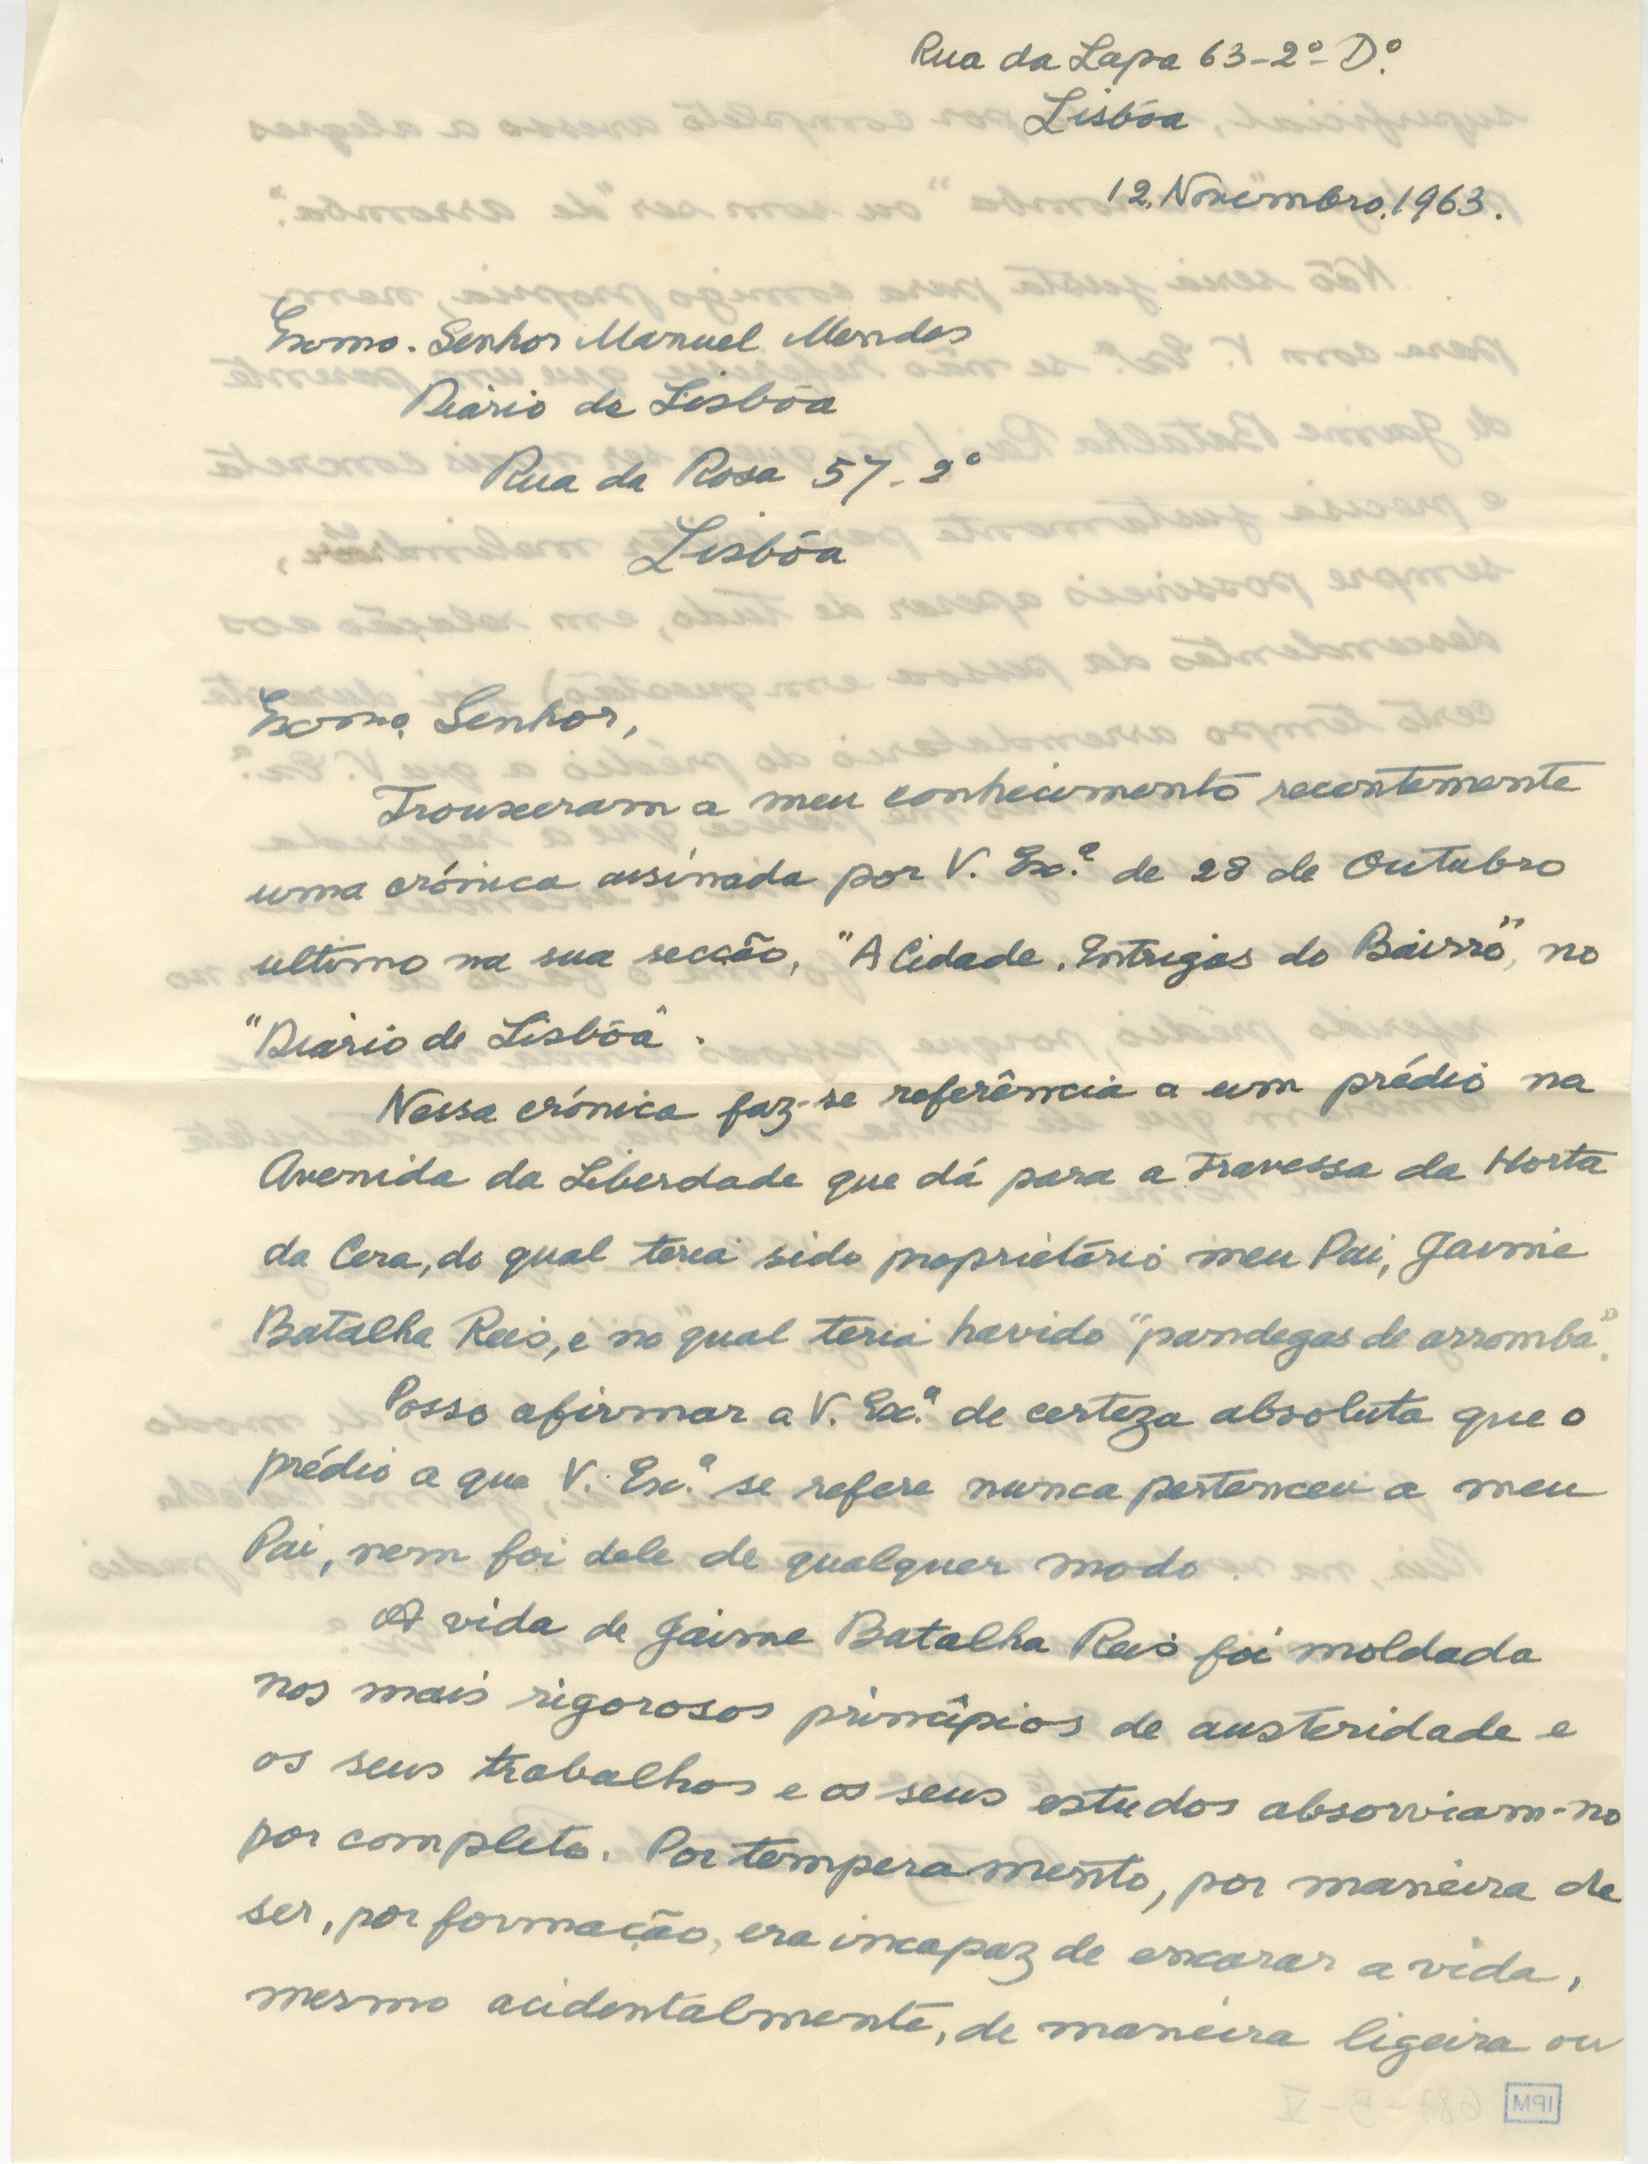 Rua da Lapa 63-2º-Dº.
Lisbôa
12.Novembro.1963.
Exomo. Senhor Manuel Mendes
Diário de Lisbôa
Rua da Rosa 57-2º
Lisbôa
Exomo. Senhor,
Trouxeram a meu conhecimento, recentemente
uma crónica assinada por V. Ex.ª de 28 de Outubro
ultimo na sua secção, "A Cidade. Intrigas do Bairro", no
"Diário de Lisbôa".
Nessa crónica faz-se referência a um prédio na
Avenida da Liberdade que dá para a Travessa da Horta
da Cera, do qual teria sido proprietário meu Pai, Jaime
Batalha Reis, e no qual teria havido "pandegas de arromba".
Posso afirmar a V. Ex.ª de certeza absoluta que o
prédio a que V. Ex.ª se refere nunca pertenceu a meu
Pai, nem foi dele de qualquer modo.
A vida de Jaime Batalha Reis foi moldada
nos mais rigorosos princípios de austeridade e
os seus trabalhos e os seus estudos absorviam-no
por completo. Por temperamento, por maneira de
ser, por formação, era incapaz de encarar a vida,
mesmo acidentalmente, de maneira ligeira ou